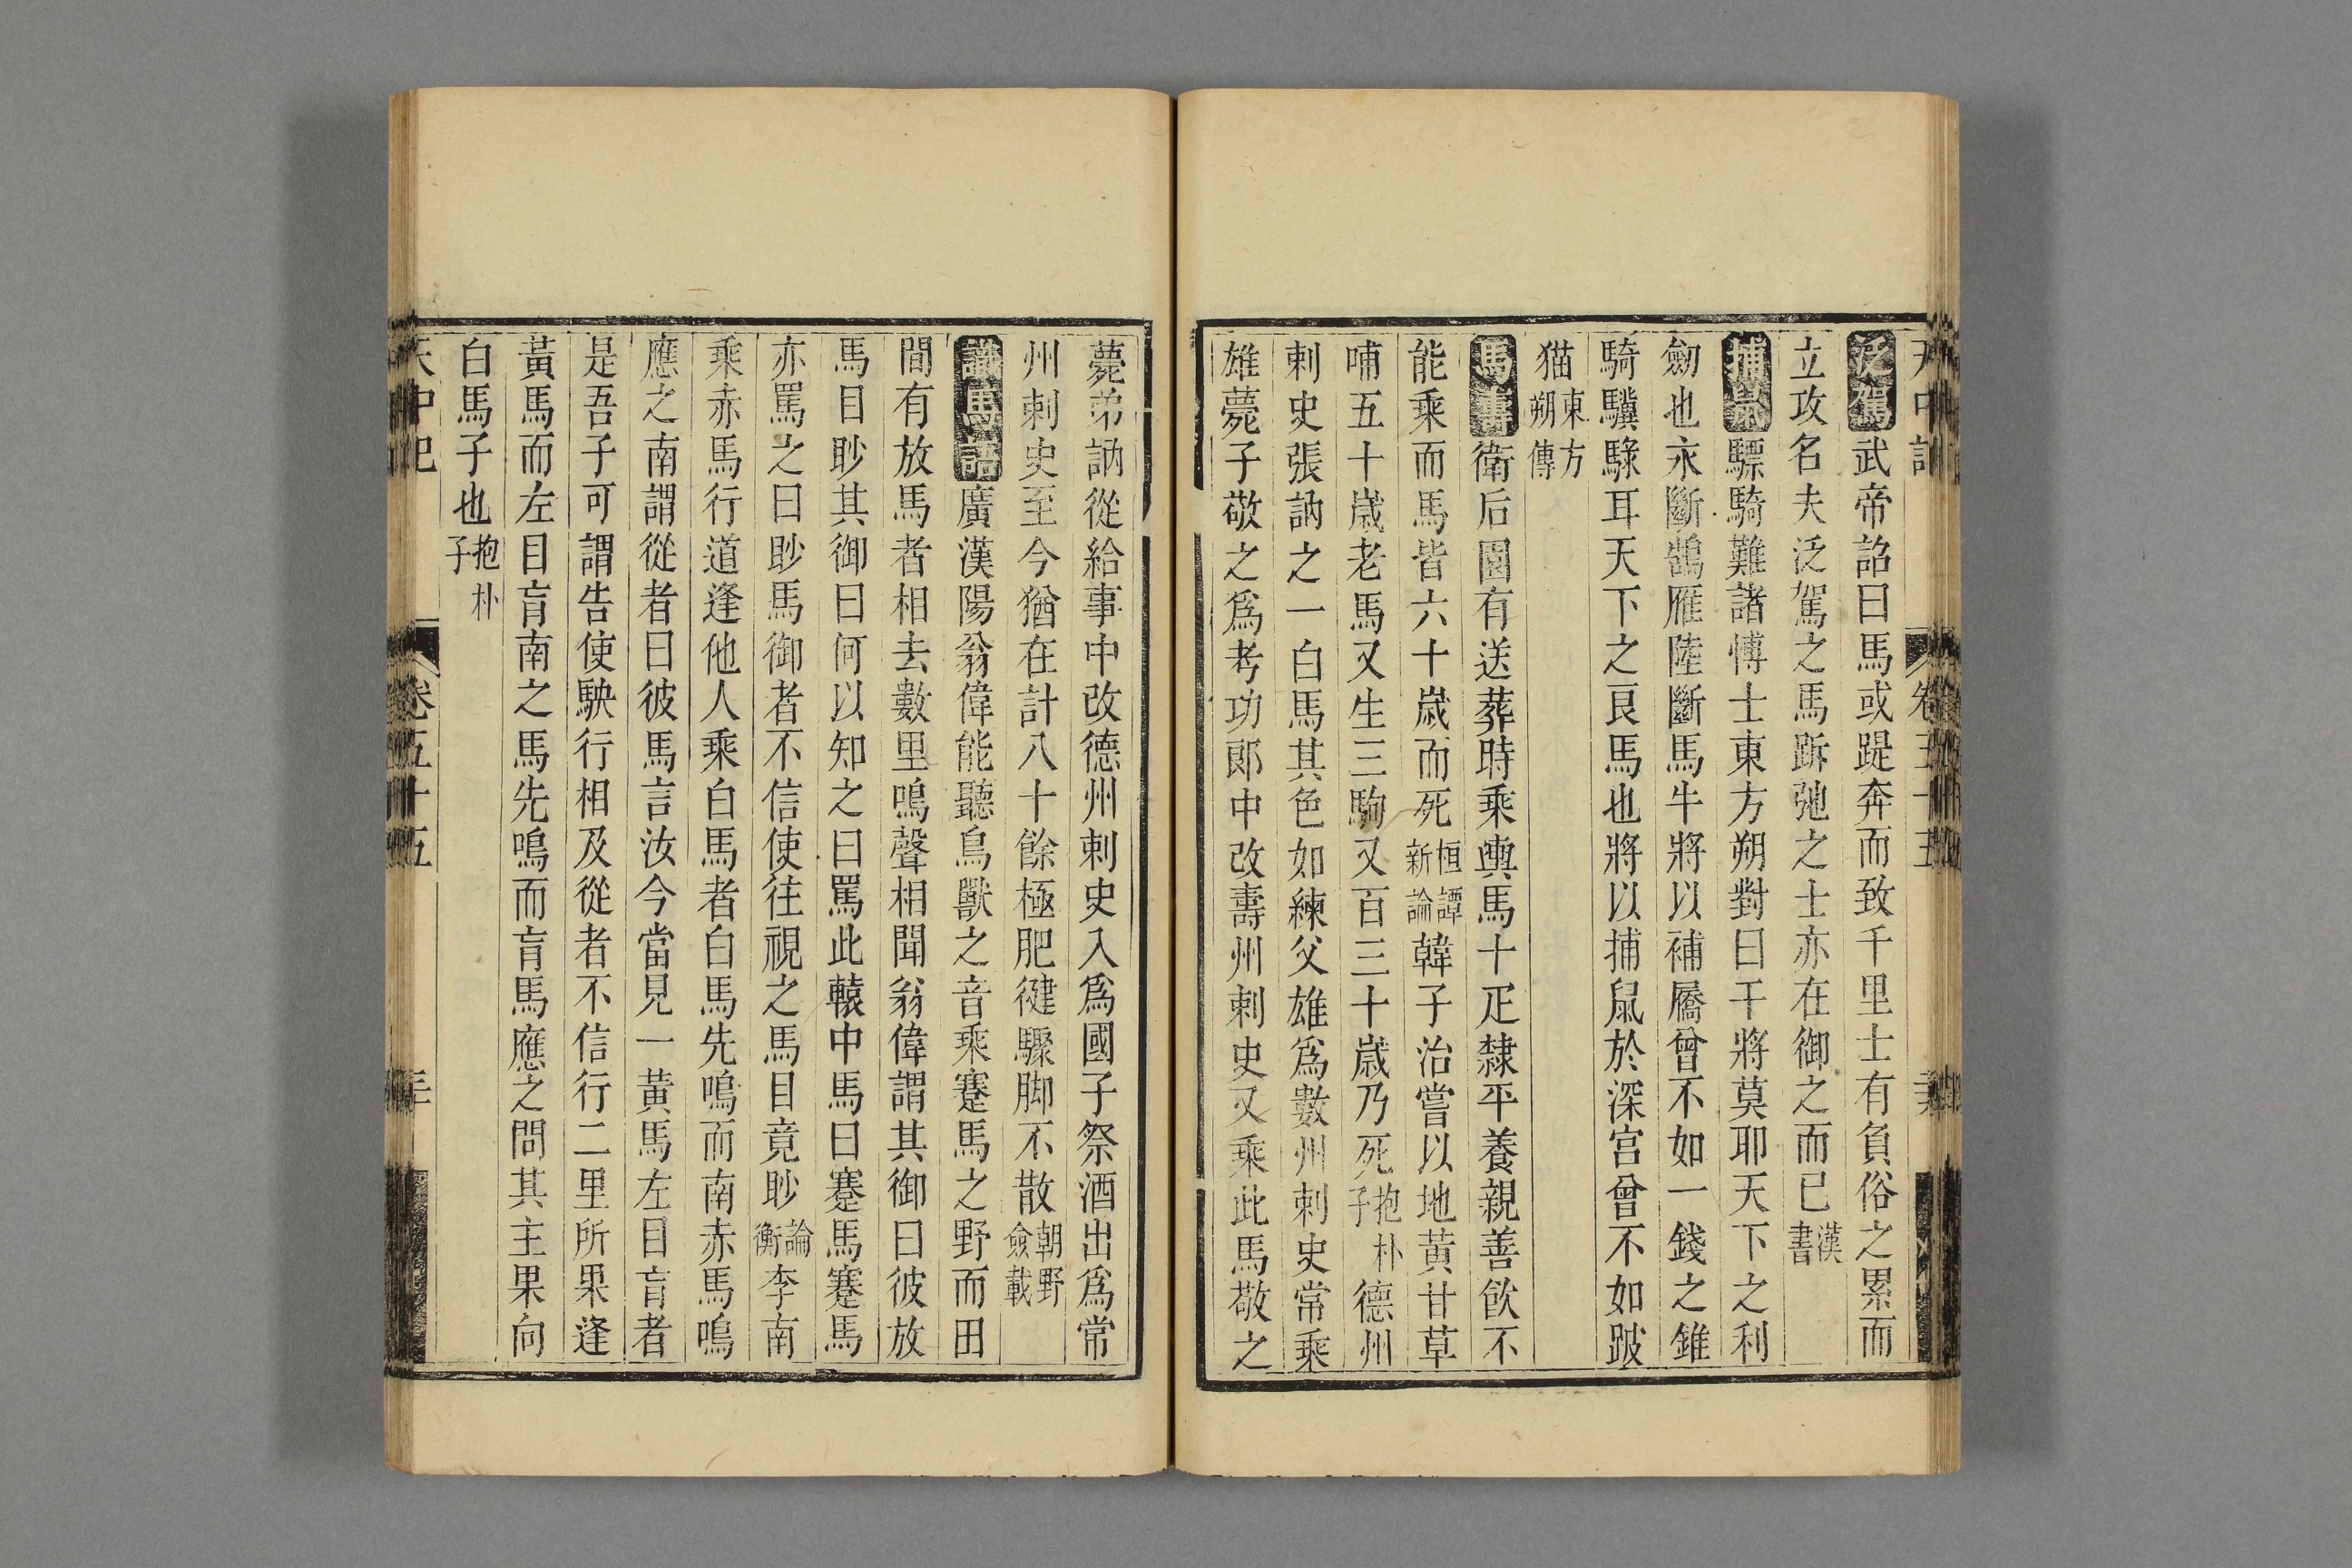 泛駕武帝詔曰馬或踶奔而致千里士有負俗之累而
立攻名夫泛駕之馬跅弛之士亦在御之而已漢書
捕鼠驃騎難諸博士東方朔對曰干將莫耶天下之利
劒也永斷鵠雁陸斷馬牛將以補屩曾不如一錢之錐
騎驥騄耳天下之良馬也將以捕鼠於深宫曾不如跛
猫東方朔傳
馬壽衛后園有送葬時乘輿馬十疋隸平養親善飲不
能乘而馬皆六十歳而死桓譚新論韓子治嘗以地黃甘草
哺五十歳老馬又生三駒又百三十歳乃死抱朴子德州
刺史張訥之一白馬其色如練父雄爲數州刺史常乘
雄薨子敬之爲考功郎中改壽州刺史又乘此馬敬之
薨弟訥從給事中改德州刺史入爲國子祭酒出爲常
州刺史至今猶在計八十餘極肥健驟脚不散朝野僉載
識馬語廣漢陽翁偉能聽鳥獸之音乘蹇馬之野而田
間有放馬者相去數里鳴聲相聞翁偉謂其御曰彼放
馬目眇其御曰何以知之曰罵此轅中馬曰蹇馬蹇馬
亦罵之曰眇馬御者不信使往視之馬目竟眇論衡李南
乘赤馬行道逢他人乘白馬者白馬先鳴而南赤馬鳴
應之南謂從者曰彼馬言汝今當見一黃馬左目盲者
是吾子可謂告使駚行相及從者不信行二里所果逢
黃馬而左目盲南之馬先鳴而盲馬應之問其主果向
白馬子也抱朴子
天中記 卷五十五 三十